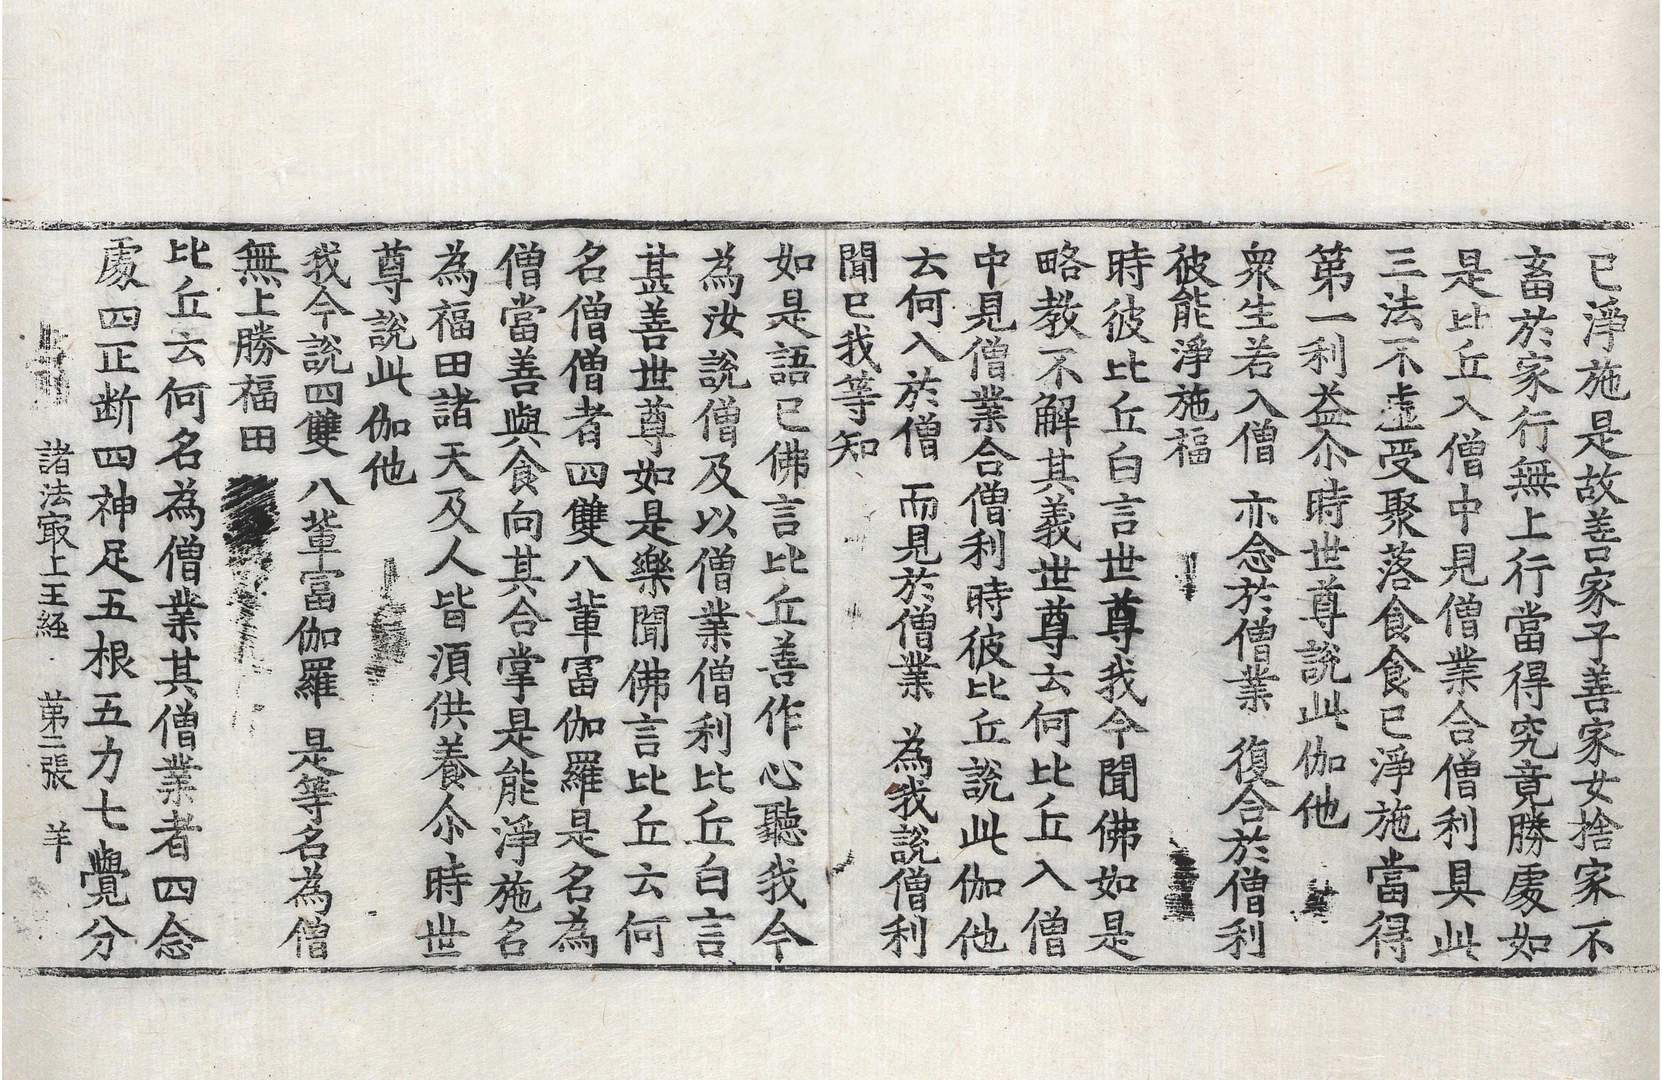 已淨施是故善家子善家女捨家不
畜於家行無上行當得究竟勝處如
是比丘入僧中見僧業合僧利具此
三法不虛受聚落食食已淨施當得
第一利益尒時世尊說此伽他
衆生若入僧 亦念於僧業 復合於僧利
彼能淨施福
時彼比丘白言世尊我今聞佛如是
略教不解其義世尊云何比丘入僧
中見僧業合僧利時彼比丘說此伽他
云何入於僧 而見於僧業 為我說僧利
聞已我等知
如是語已佛言比丘善作心聽我今
為汝說僧及以僧業僧利比丘白言
甚善世尊如是樂聞佛言比丘云何
名僧僧者四雙八輩富伽羅是名為
僧當善與食向其合掌是能淨施名
為福田諸天及人皆湏供養尒時世
尊說此伽他
我今說四雙 八輩富伽羅 是等名為僧
無上勝福田
比丘云何名為僧業其僧業者四念
處四正断四神足五根五力七覺分
諸法㝡上王経 第二張 羊